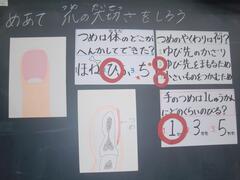 めあて 爪の大切さをしろう
つめは体のどこが
へんかしてできた?
ほね ひふ ち
つめのやくわりは何?
ゆび先のかざり
ゆび先をまもるため
小さいものをつかむため
手のつめは1しゅうかん
にどのくらいのびる?
1 3 5